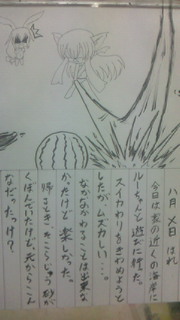 八月メ日はれ
今日は家の近くの海岸に
ルーちゃんと遊びに行った。
スイカわりをきわめようと
したが、ムズカしい…。
なかなかわることは出来な
かたけど楽しかった。
帰るときところじゅう砂が
くぼんでいたけど、元からこん
なだったっけ？